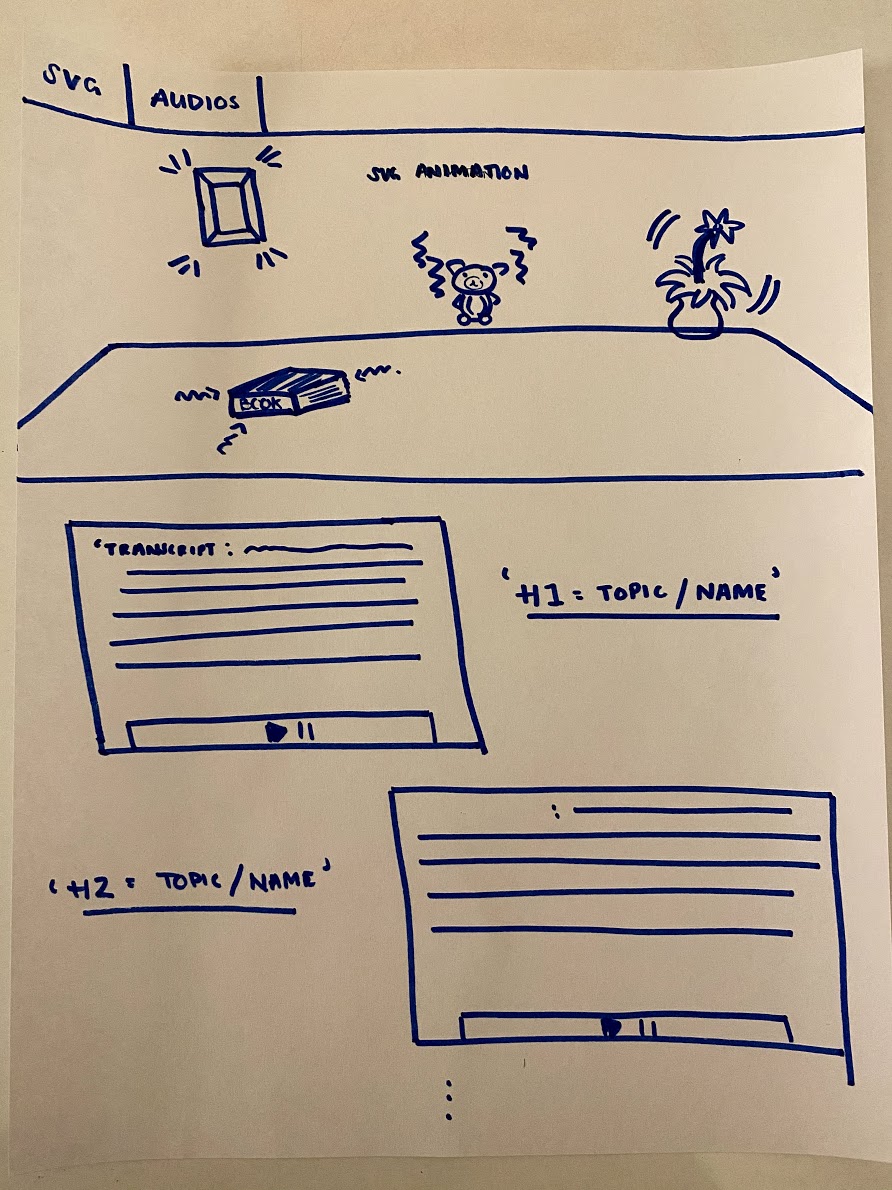 SVG
AUDIOS
SVG ANIMATION
BOOK
'TRANSCRIPT :
'H1 = TOPIC / NAME'
:
'H2 = TOPIC / NAME'